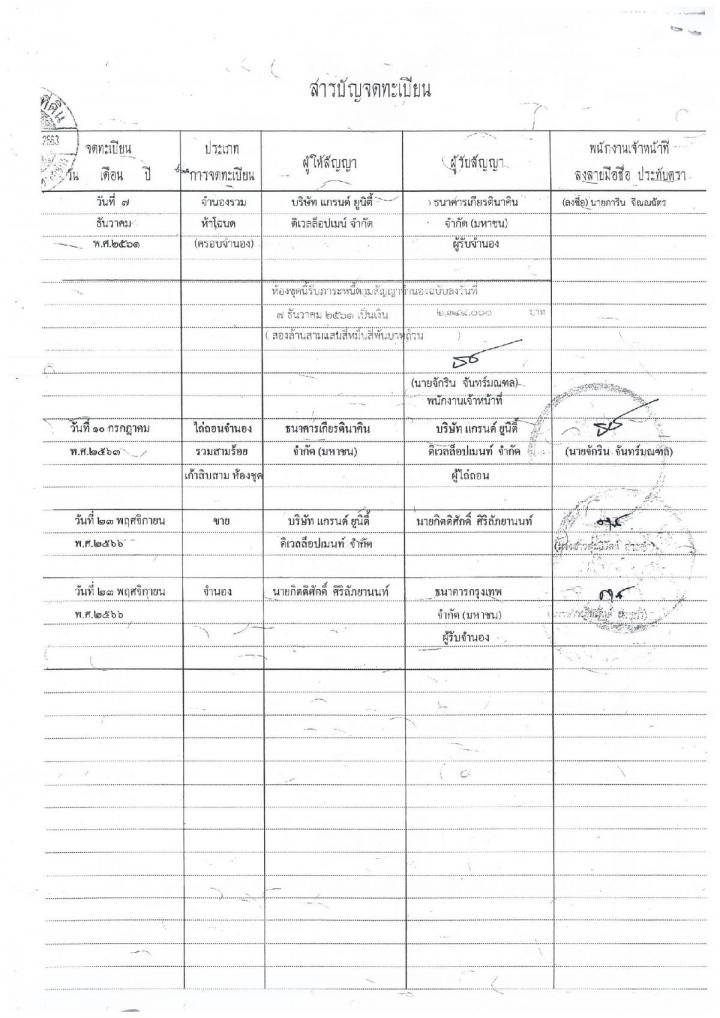 สารบัญจดทะเบียน
ที่ดิน
2563
จดทะเบียน
วัน เดือน ปี
ประเภท
การจดทะเบียน
ผู้ให้สัญญา
ผู้รับสัญญา
พนักงานเจ้าหน้าที่
ลงลายมือชื่อ ประทับตรา
วันที่ ๗ จำนองรวม บริษัท แกรนด์ ยูนิตี้ ธนาคารเกียรตินาคิน (ลงชื่อ) นายภาวิน
ธันวาคม ห้าโฉนด ดิเวลล็อปเมน์ จำกัด จำกัด (มหาชน)
พ.ศ.๒๕๖๑ (ครอบจำนอง) ผู้รับจำนอง
ห้องชุดนี้รับภาระหนี้ตามสัญญาจำนองฉบับลงวันที่
๗ ธันวาคม ๒๕๖๑ เป็นเงิน ๒,๓๔๔,๐๐๐ บาท
( สองล้านสามแสนสี่หมื่นสี่พันบาทถ้วน )
(นายจักริน จันทร์มณฑล)
พนักงานเจ้าหน้าที่
วันที่ ๑๐ กรกฎาคม ไถ่ถอนจำนอง ธนาคารเกียรตินาคิน บริษัท แกรนด์ ยูนิตี้
พ.ศ.๒๕๖๓ รวมสามร้อย จำกัด (มหาชน) ดิเวลล็อปเมนท์ จำกัด (นายจักริน จันทร์มณฑล)
เก้าสิบสาม ห้องชุด ผู้ไถ่ถอน
วันที่ ๒๓ พฤศจิกายน ขาย บริษัท แกรนด์ ยูนิตี้ นายกิตติศักดิ์ ศิริลัภยานนท์
พ.ศ.๒๕๖๖ ดิเวลล็อปเมนท์ จำกัด
วันที่ ๒๓ พฤศจิกายน จำนอง นายกิตติศักดิ์ ศิริลัภยานนท์ ธนาคารกรุงเทพ
พ.ศ.๒๕๖๖ จำกัด (มหาชน)
ผู้รับจำนอง